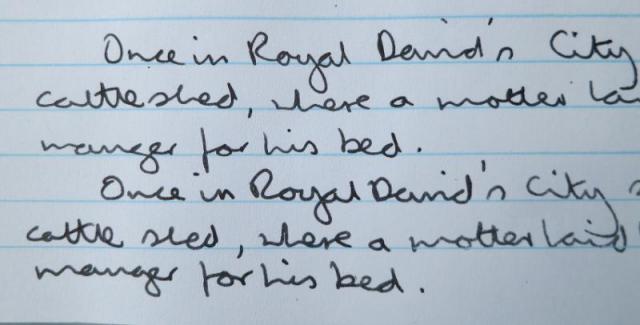 Once in Royal David's City
cattle shed, where a mother
manger for his bed.
Once in Royal David's City
cattle shed, where a mother laid
manger for his bed.